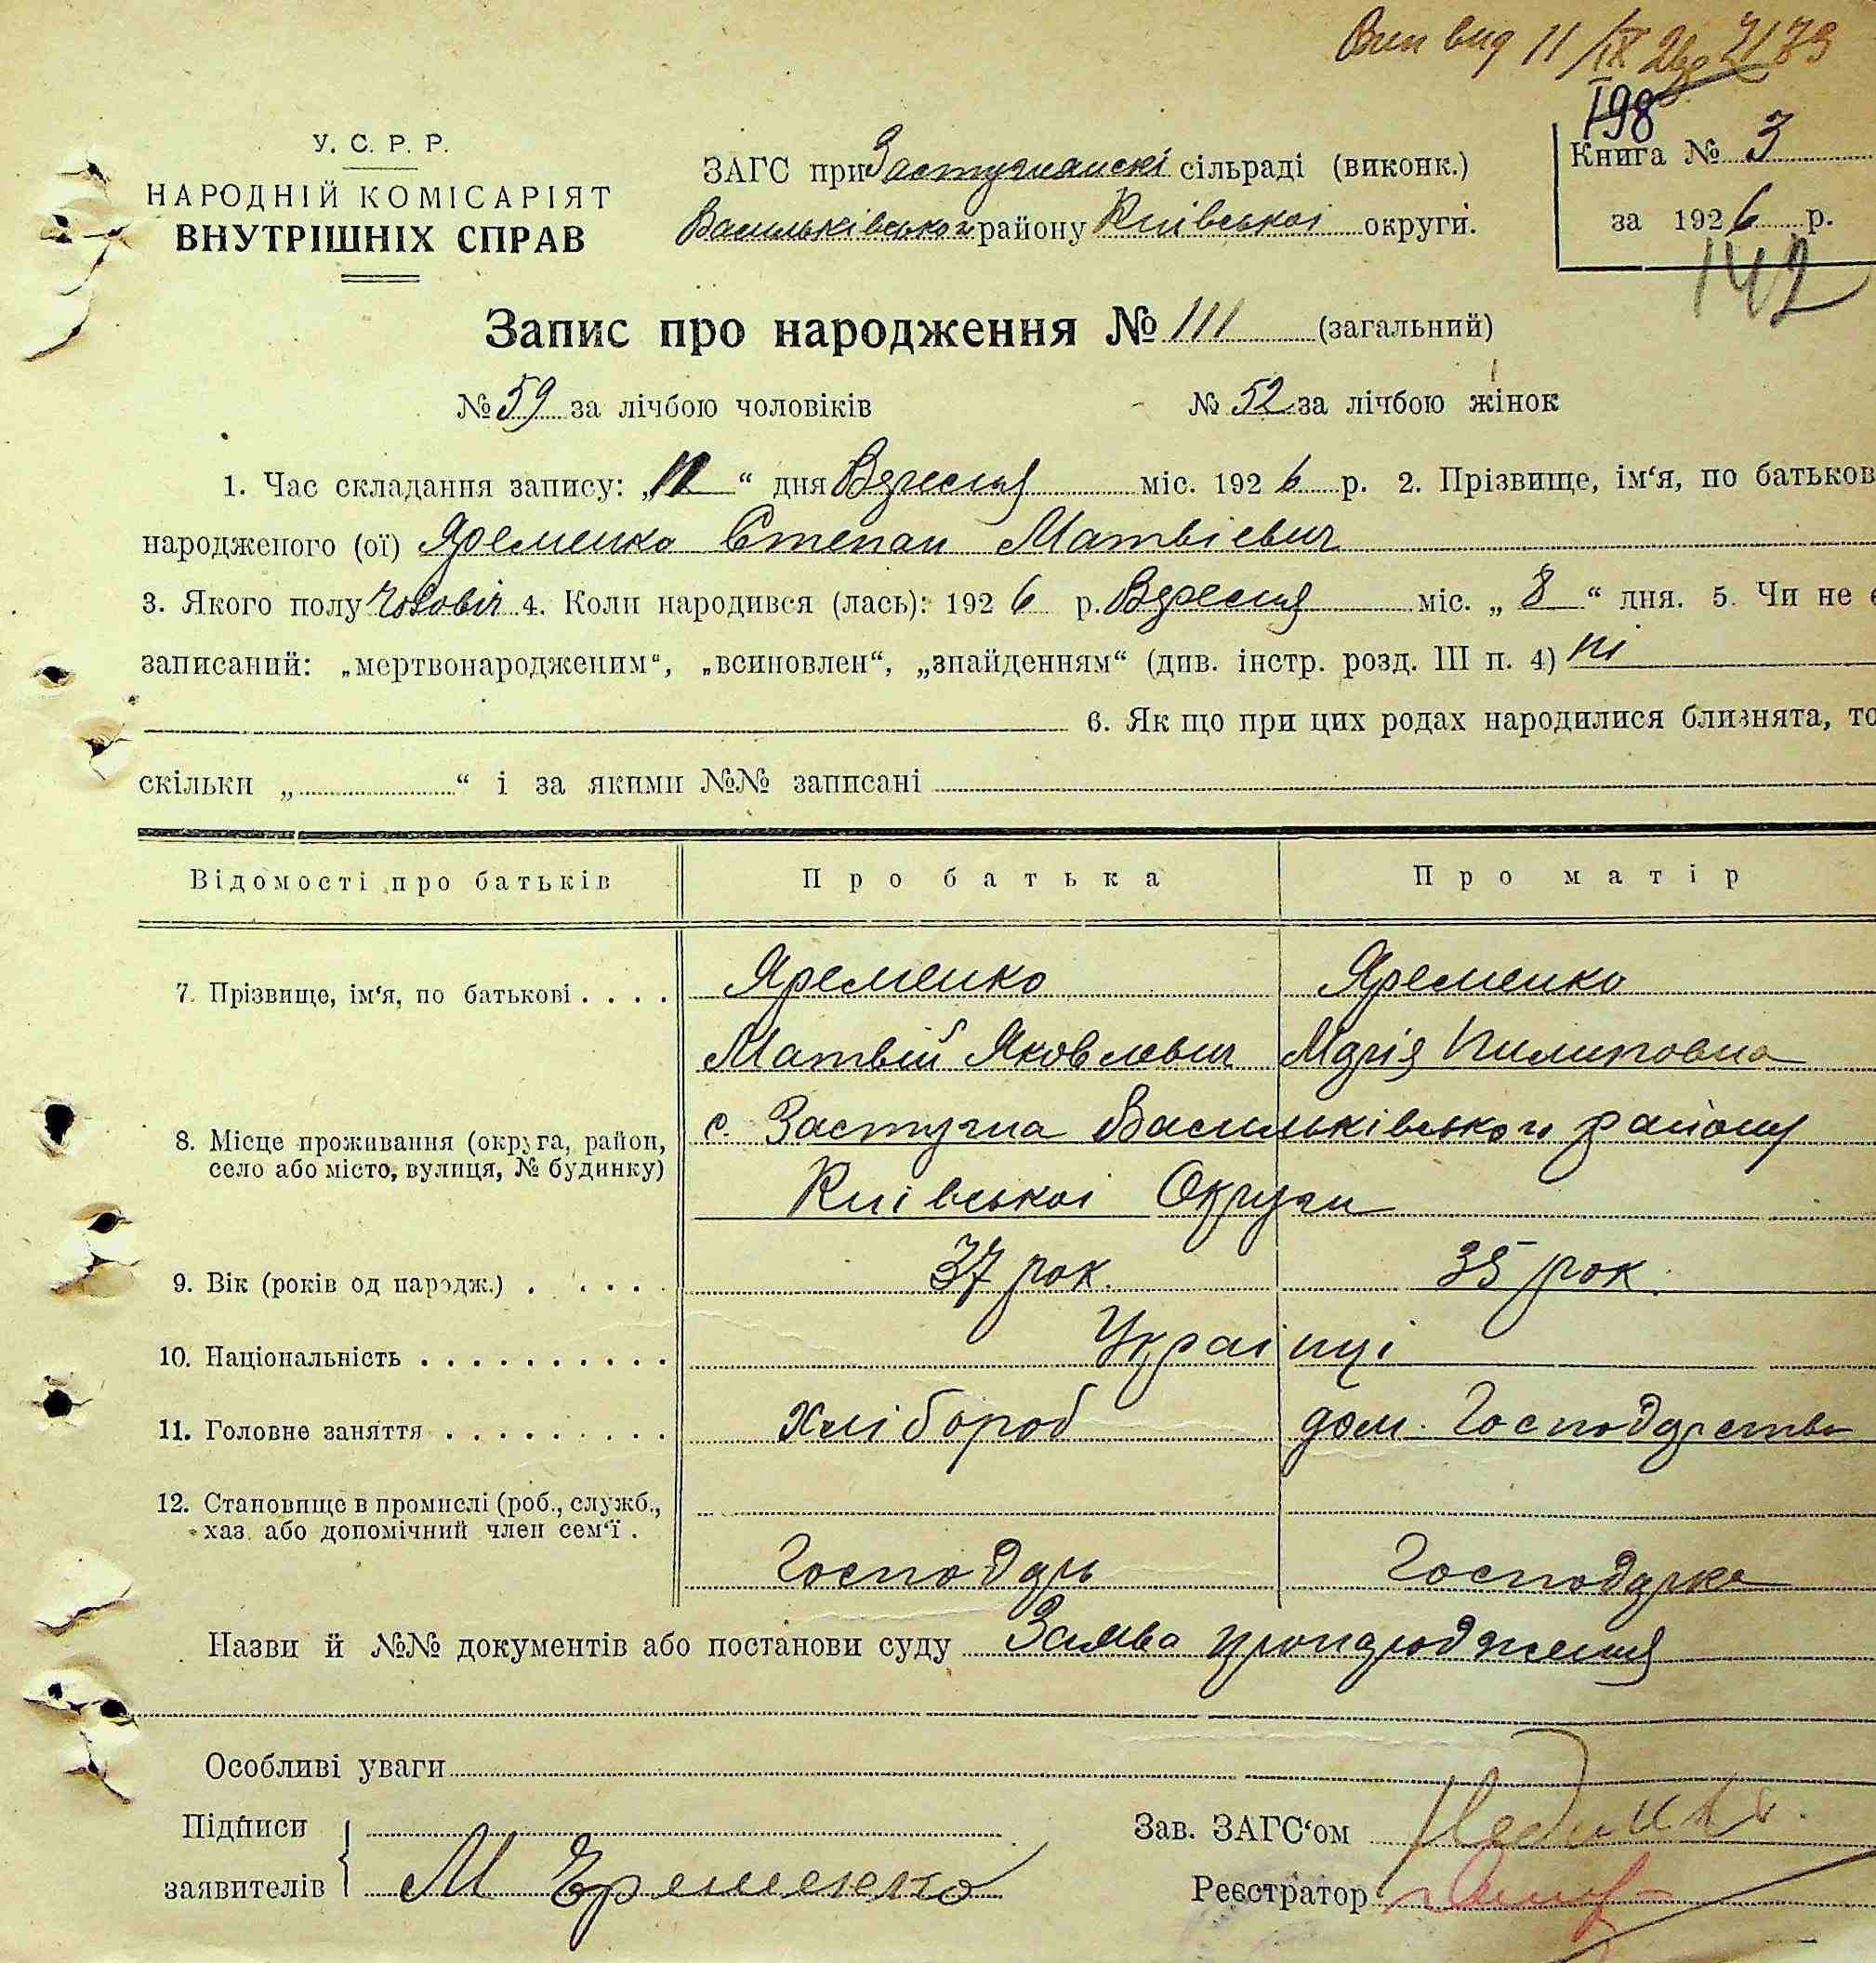 Вип вид 11/IX 2173
198
У. С. Р. Р.
НАРОДНІЙ КОМІСАРІЯТ
ВНУТРІШНІХ СПРАВ
ЗАГС при Застугнянскі сільраді (виконк.)
Васильківського району Київськоі округи.
Книга № 3
за 1926 р.
142
Запис про народження № 111 (загальний)
№ 59 за лічбою чоловіків № 52 за лічбою жінок
1. Час складання запису: „11“ дня Вересня міс. 1926 р. 2. Прізвище, ім‘я, по батьков
народженого (ої) Яременко Степан Матвіевич
3. Якого полу Чоловіч 4. Коли народився (лась): 1926 р. Вересня міс. „8“ дня. 5. Чи не є
записаний: „мертвонародженим“, „всиновлен“, „знайденням“ (див. інстр. розд. III п. 4) ні
6. Як що при цих родах народилися близнята, то
скільки „ “ і за якими №№ записані
Відомості про батьків Про батька Про матір
7. Прізвище, ім‘я, по батькові . . . . Яременко Яременко
Матвій Яковлевич Марія Пилиповна
8. Місце проживання (округа, район,
село або місто, вулиця, № будинку)
с. Застугна Васильківського району
Київськоі Округи
9. Вік (років од народж.) . . . . . 37 рок. 35 рок.
10. Національність . . . . . . . . . . . Украінці
11. Головне заняття . . . . . . . . . Хлібороб дом. Господарство
12. Становище в промислі (роб., служб.,
хаз. або допомічний член сем‘ї .
Господарь Господарка
Назви й №№ документів або постанови суду Заява про народження
Особливі уваги
Підписи
заявителів М Еременко
Зав. ЗАГС‘ом
Реєстратор